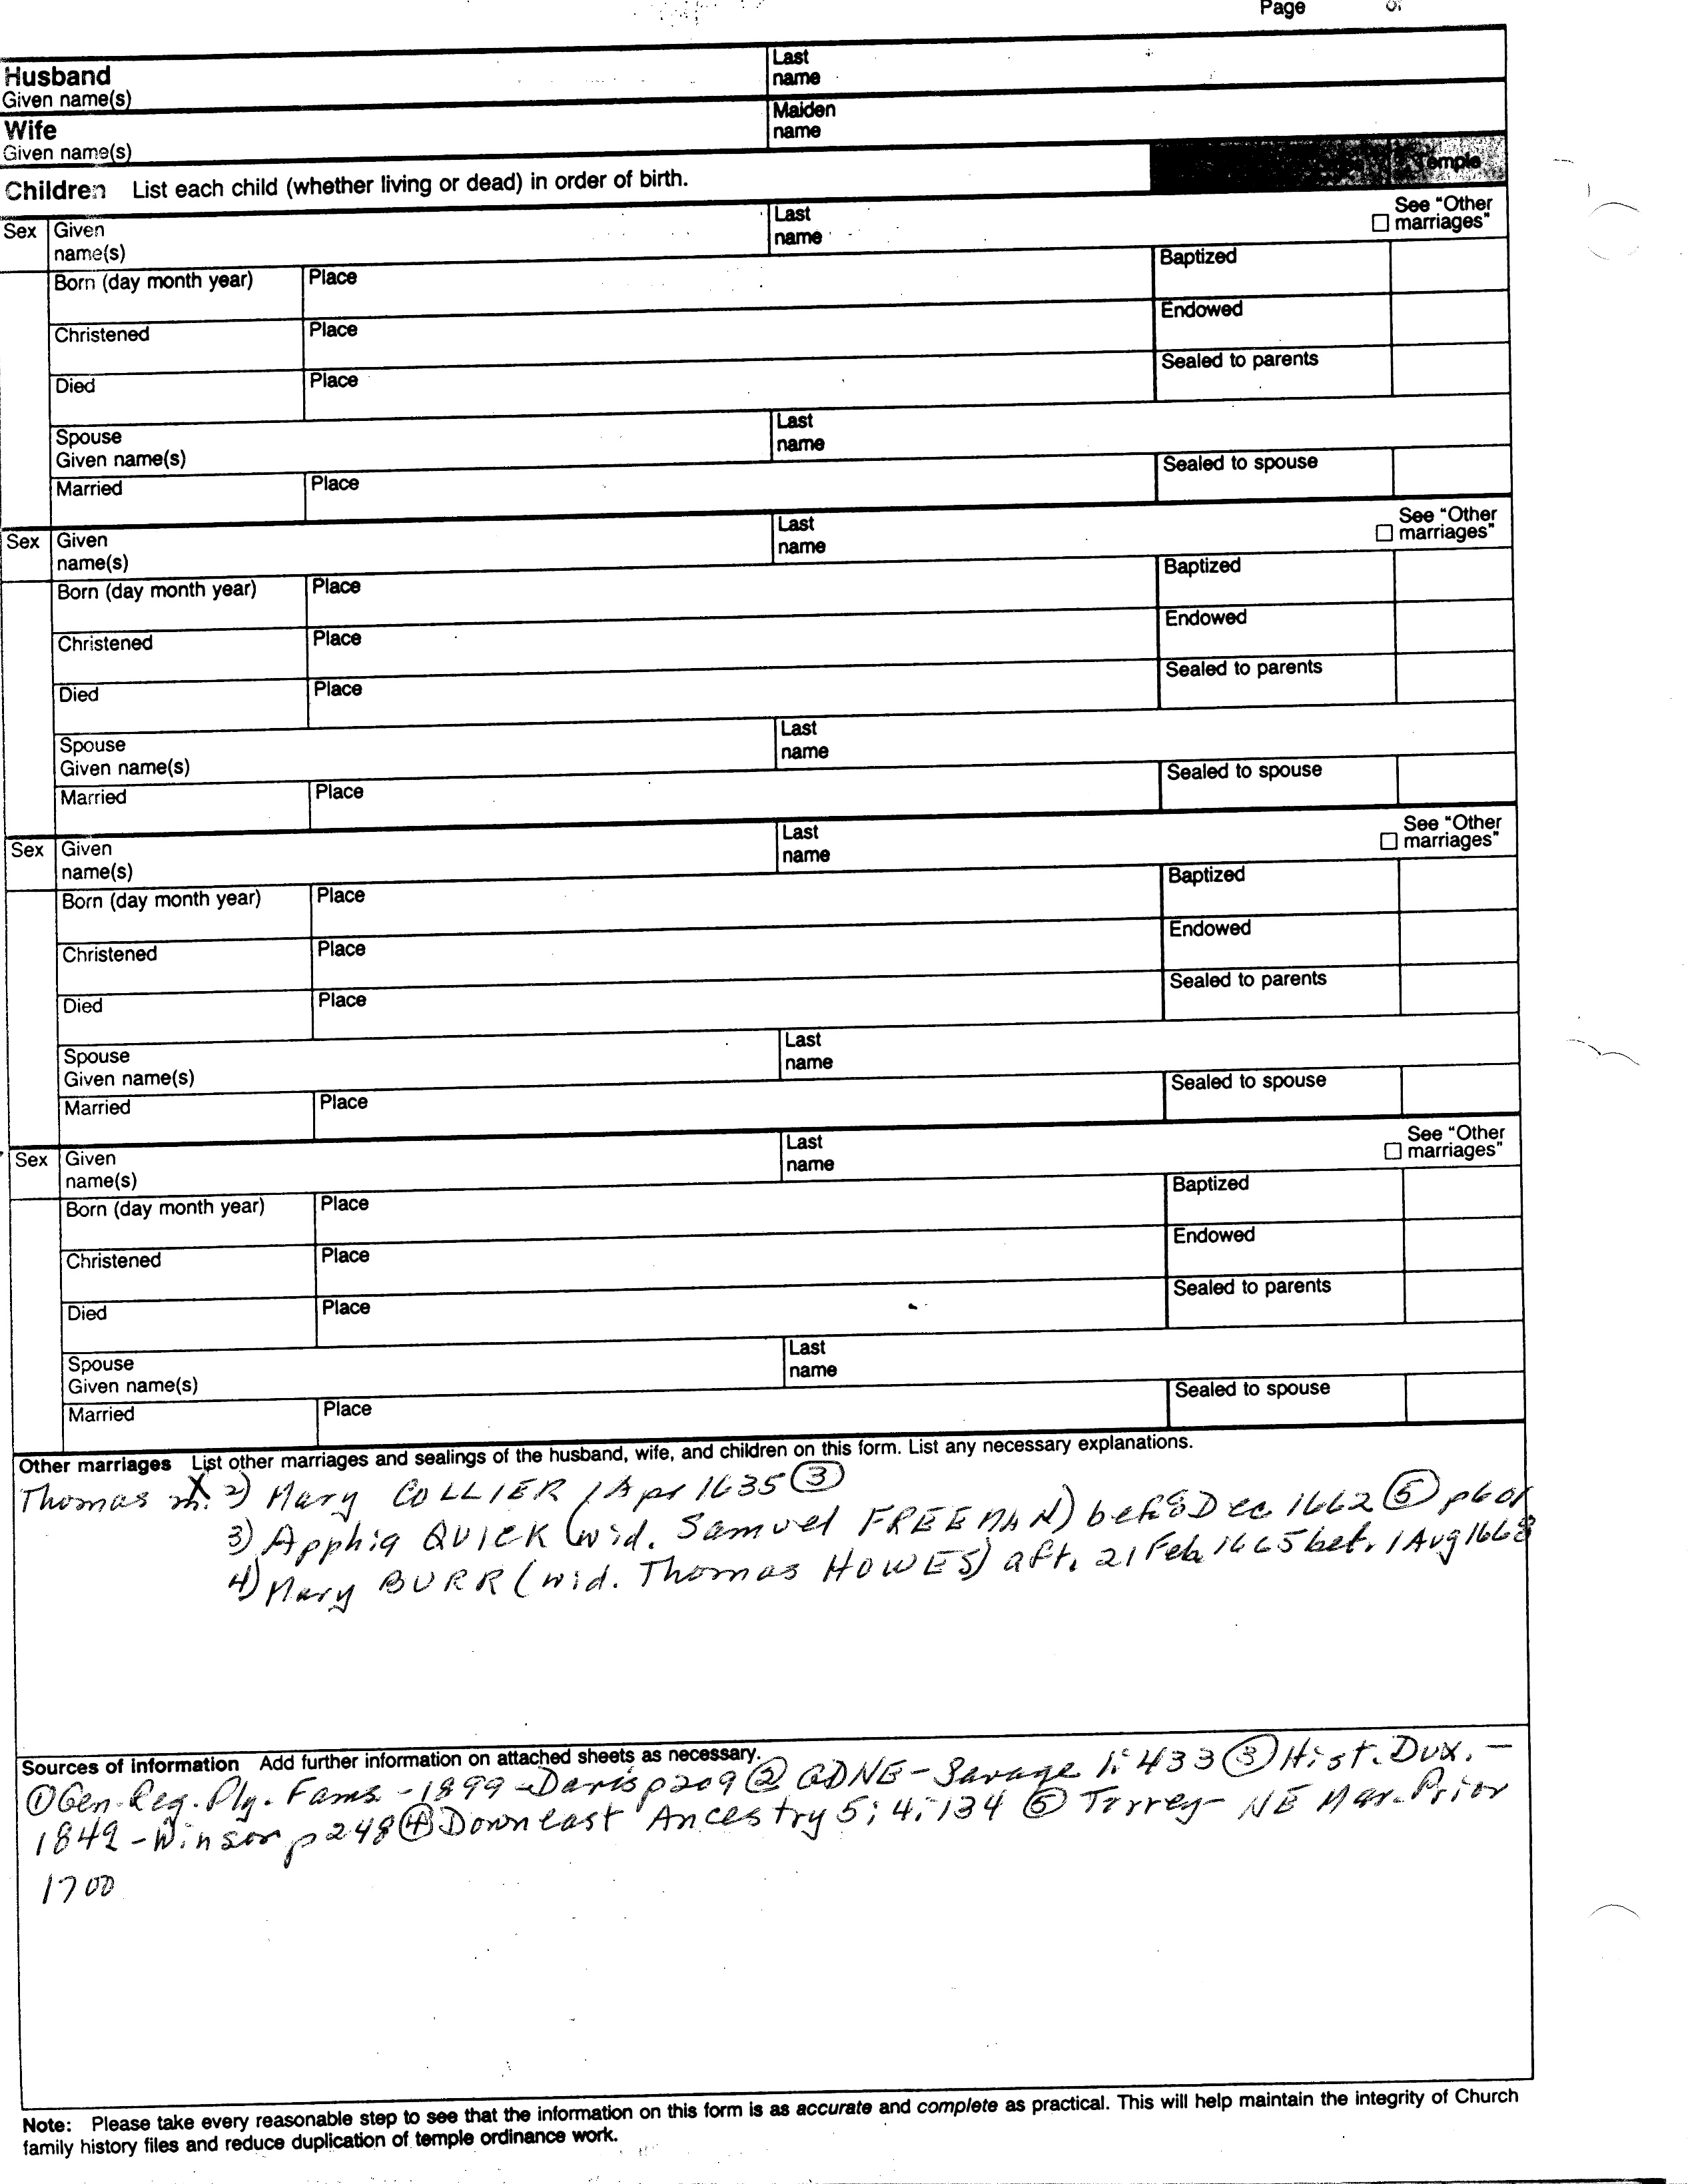 Page of
Husband
Given name(s)
Last
name
Wife
Given name(s)
Maiden
name
Children List each child (whether living or dead) in order of birth.
Temple
Sex Given
name(s)
Last
name
See "Other
marriages"
Born (day month year) Place Baptized
Christened Place Endowed
Died Place Sealed to parents
Spouse
Given name(s)
Last
name
Married Place Sealed to spouse
Sex Given
name(s)
Last
name
See "Other
marriages"
Born (day month year) Place Baptized
Christened Place Endowed
Died Place Sealed to parents
Spouse
Given name(s)
Last
name
Married Place Sealed to spouse
Sex Given
name(s)
Last
name
See "Other
marriages"
Born (day month year) Place Baptized
Christened Place Endowed
Died Place Sealed to parents
Spouse
Given name(s)
Last
name
Married Place Sealed to spouse
Sex Given
name(s)
Last
name
See "Other
marriages"
Born (day month year) Place Baptized
Christened Place Endowed
Died Place Sealed to parents
Spouse
Given name(s)
Last
name
Married Place Sealed to spouse
Other marriages List other marriages and sealings of the husband, wife, and children on this form. List any necessary explanations.
Thomas m. X 2) Mary COLLIER 1 Apr 1635 ③
3) Apphia QUICK (wid. Samuel FREEMAN) bef 8 Dec 1662 ⑤
4) Mary BURR (wid. Thomas HOWES) aft. 21 Feb 1665 bet. 1 Aug 1668
Sources of information Add further information on attached sheets as necessary.
① Gen. Reg. Ply. Fams. - 1899 - Davis p209 ② GDNE - Savage 1: 433 ③ Hist. Dux. -
1849 - Winsor p248 ④ Downeast Ancestry 5; 4; 134 ⑤ Torrey - NE Mar. Prior
1700
Note: Please take every reasonable step to see that the information on this form is as accurate and complete as practical. This will help maintain the integrity of Church
family history files and reduce duplication of temple ordinance work.